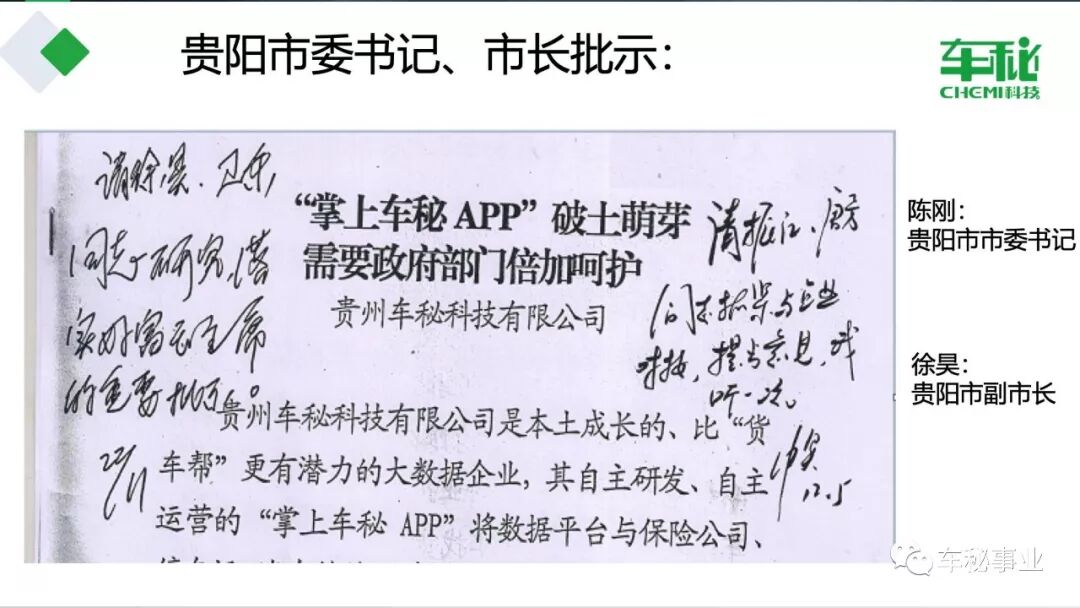 贵阳市委书记、市长批示：
车秘
CHEMI科技
请徐昊、卫东
同志研究,落
实好富玉主席
的重要批示。
22/11
“掌上车秘 APP”破土萌芽
需要政府部门倍加呵护
贵州车秘科技有限公司
请振江、
同志抓紧与企业
对接，提出意见，我
听一次。
徐昊
12.5
贵州车秘科技有限公司是本土成长的、比“货
车帮”更有潜力的大数据企业，其自主研发、自主
运营的“掌上车秘 APP”将数据平台与保险公司、
陈刚：
贵阳市市委书记
徐昊：
贵阳市副市长
车秘事业